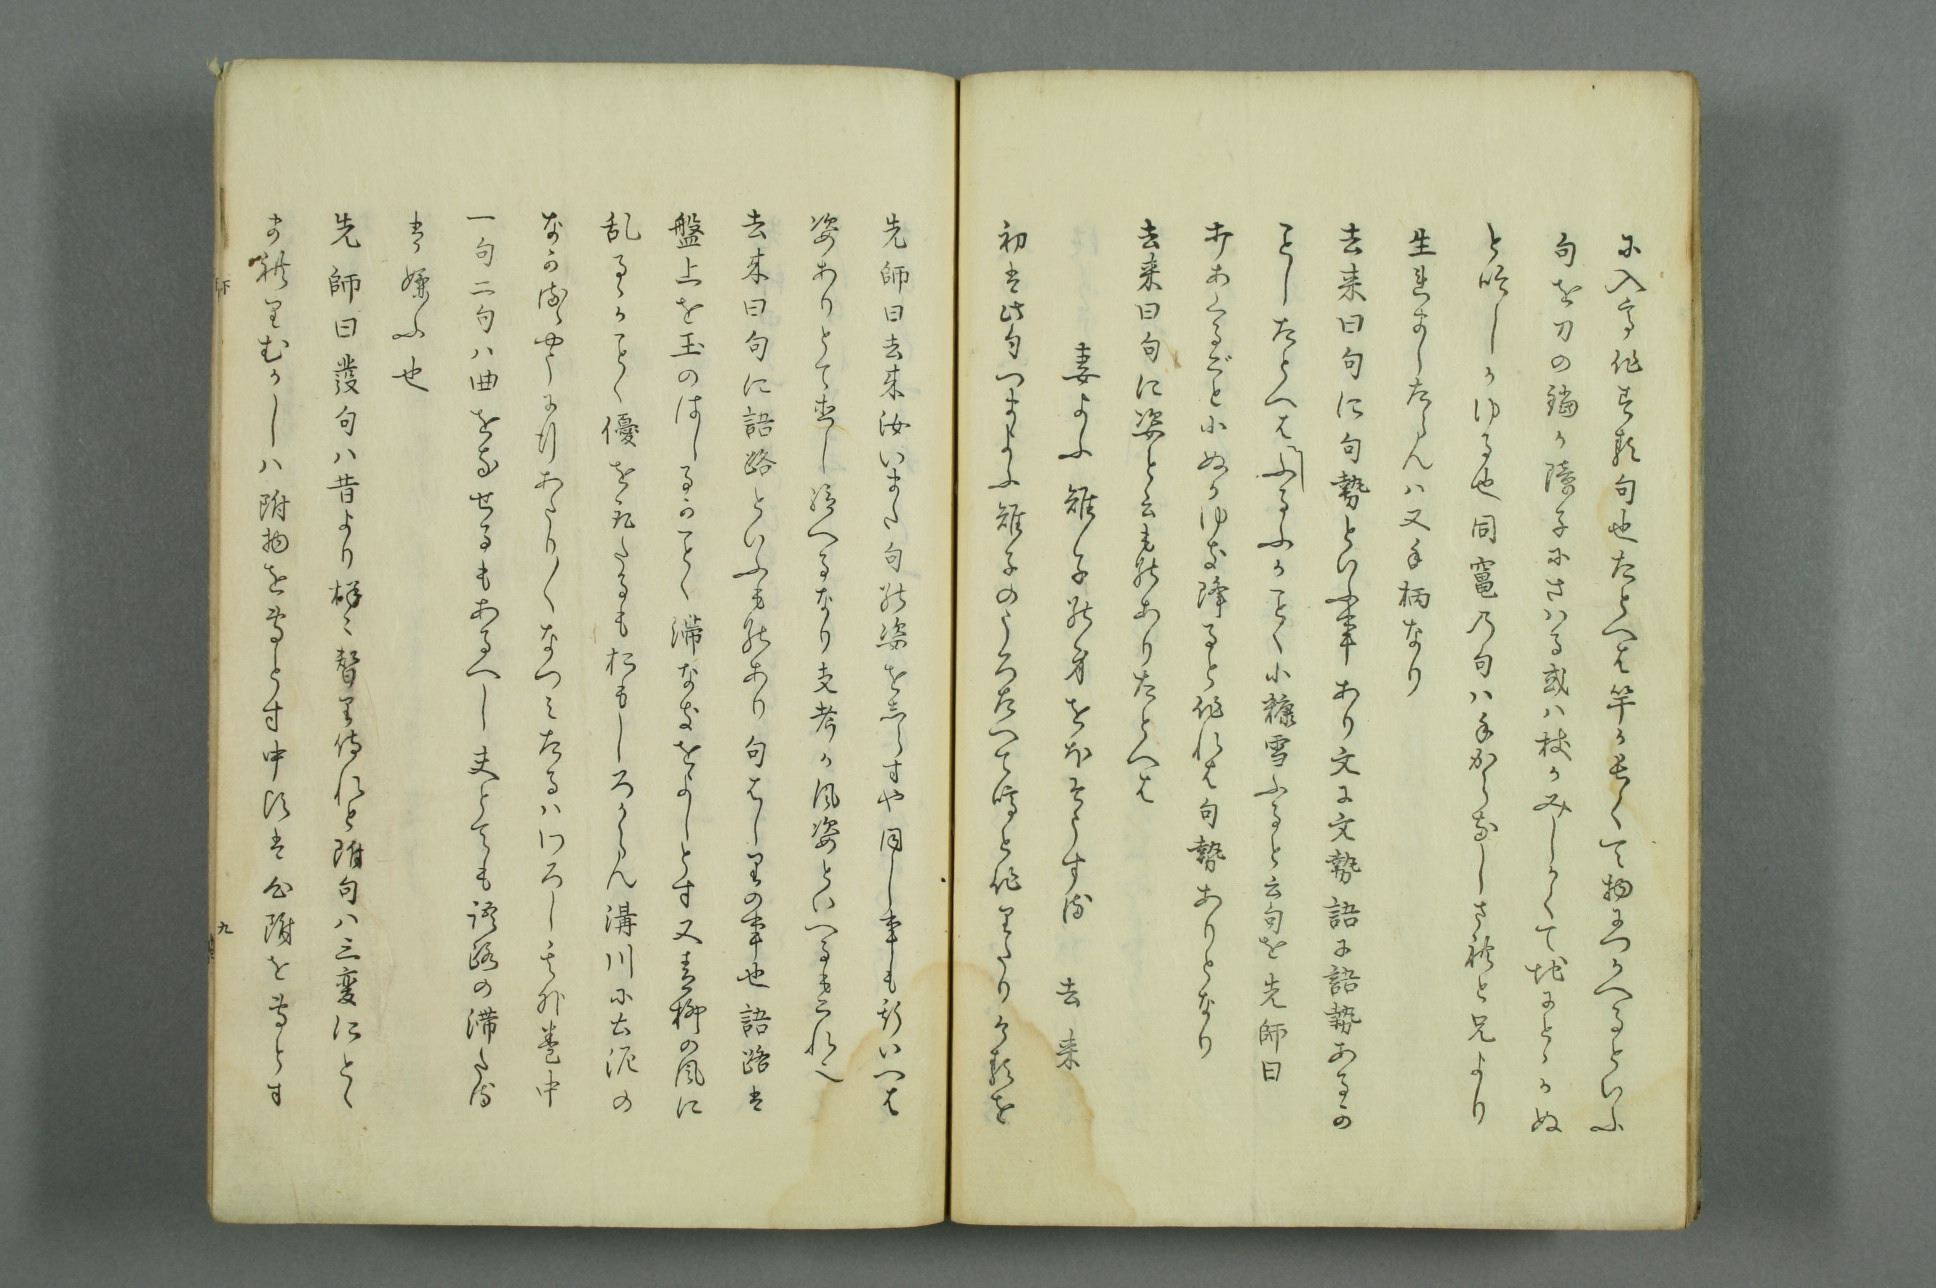 に入て作する類句也たとへは竿か長くて物につかへるといふ
句を刀の鐺か障子にさはる或ハ杖かみしかくて地にとゝかぬ
と吟しかゆる也同竈乃句ハ手からなしされと兄より
生れましたらんハ又手柄なり
去来曰句に句勢といふ事あり文に文勢語に語勢あるの
ことしたとへはふるふかことく小糠雪ふると云句を先師曰
うちあくることに小ぬかゆき降ると作れは句勢ありとなり
去来曰句に姿と云もの有たとへは
妻よふ雉子の身をほそうする　去来
初は此句つまよふ雉子のうろたへて啼と作りたりけるを
先師曰去来汝いまた句の姿をしらすや同し事も斯いへは
姿ありとて直し給へるなり支考か風姿といへるもこれ也
去来曰句に語路といふものあり句はしりの事也語路は
盤上を玉のはしるかことく滞なきをよしとす又青柳の風に
乱るゝことく優をとりたるもおもしろからん溝川に土泥の
なかるゝやうに行あたり〳〵なつみたるハわろし其外巻中
一句二句ハ曲をなせるもあるへし夫とても語路の滞たる
は嫌ふ也
先師曰發句ハ昔より様々替り侍れと附句ハ三変にとゝ
まれりむかしハ附物を専とす中比は心附を専とす
下
九